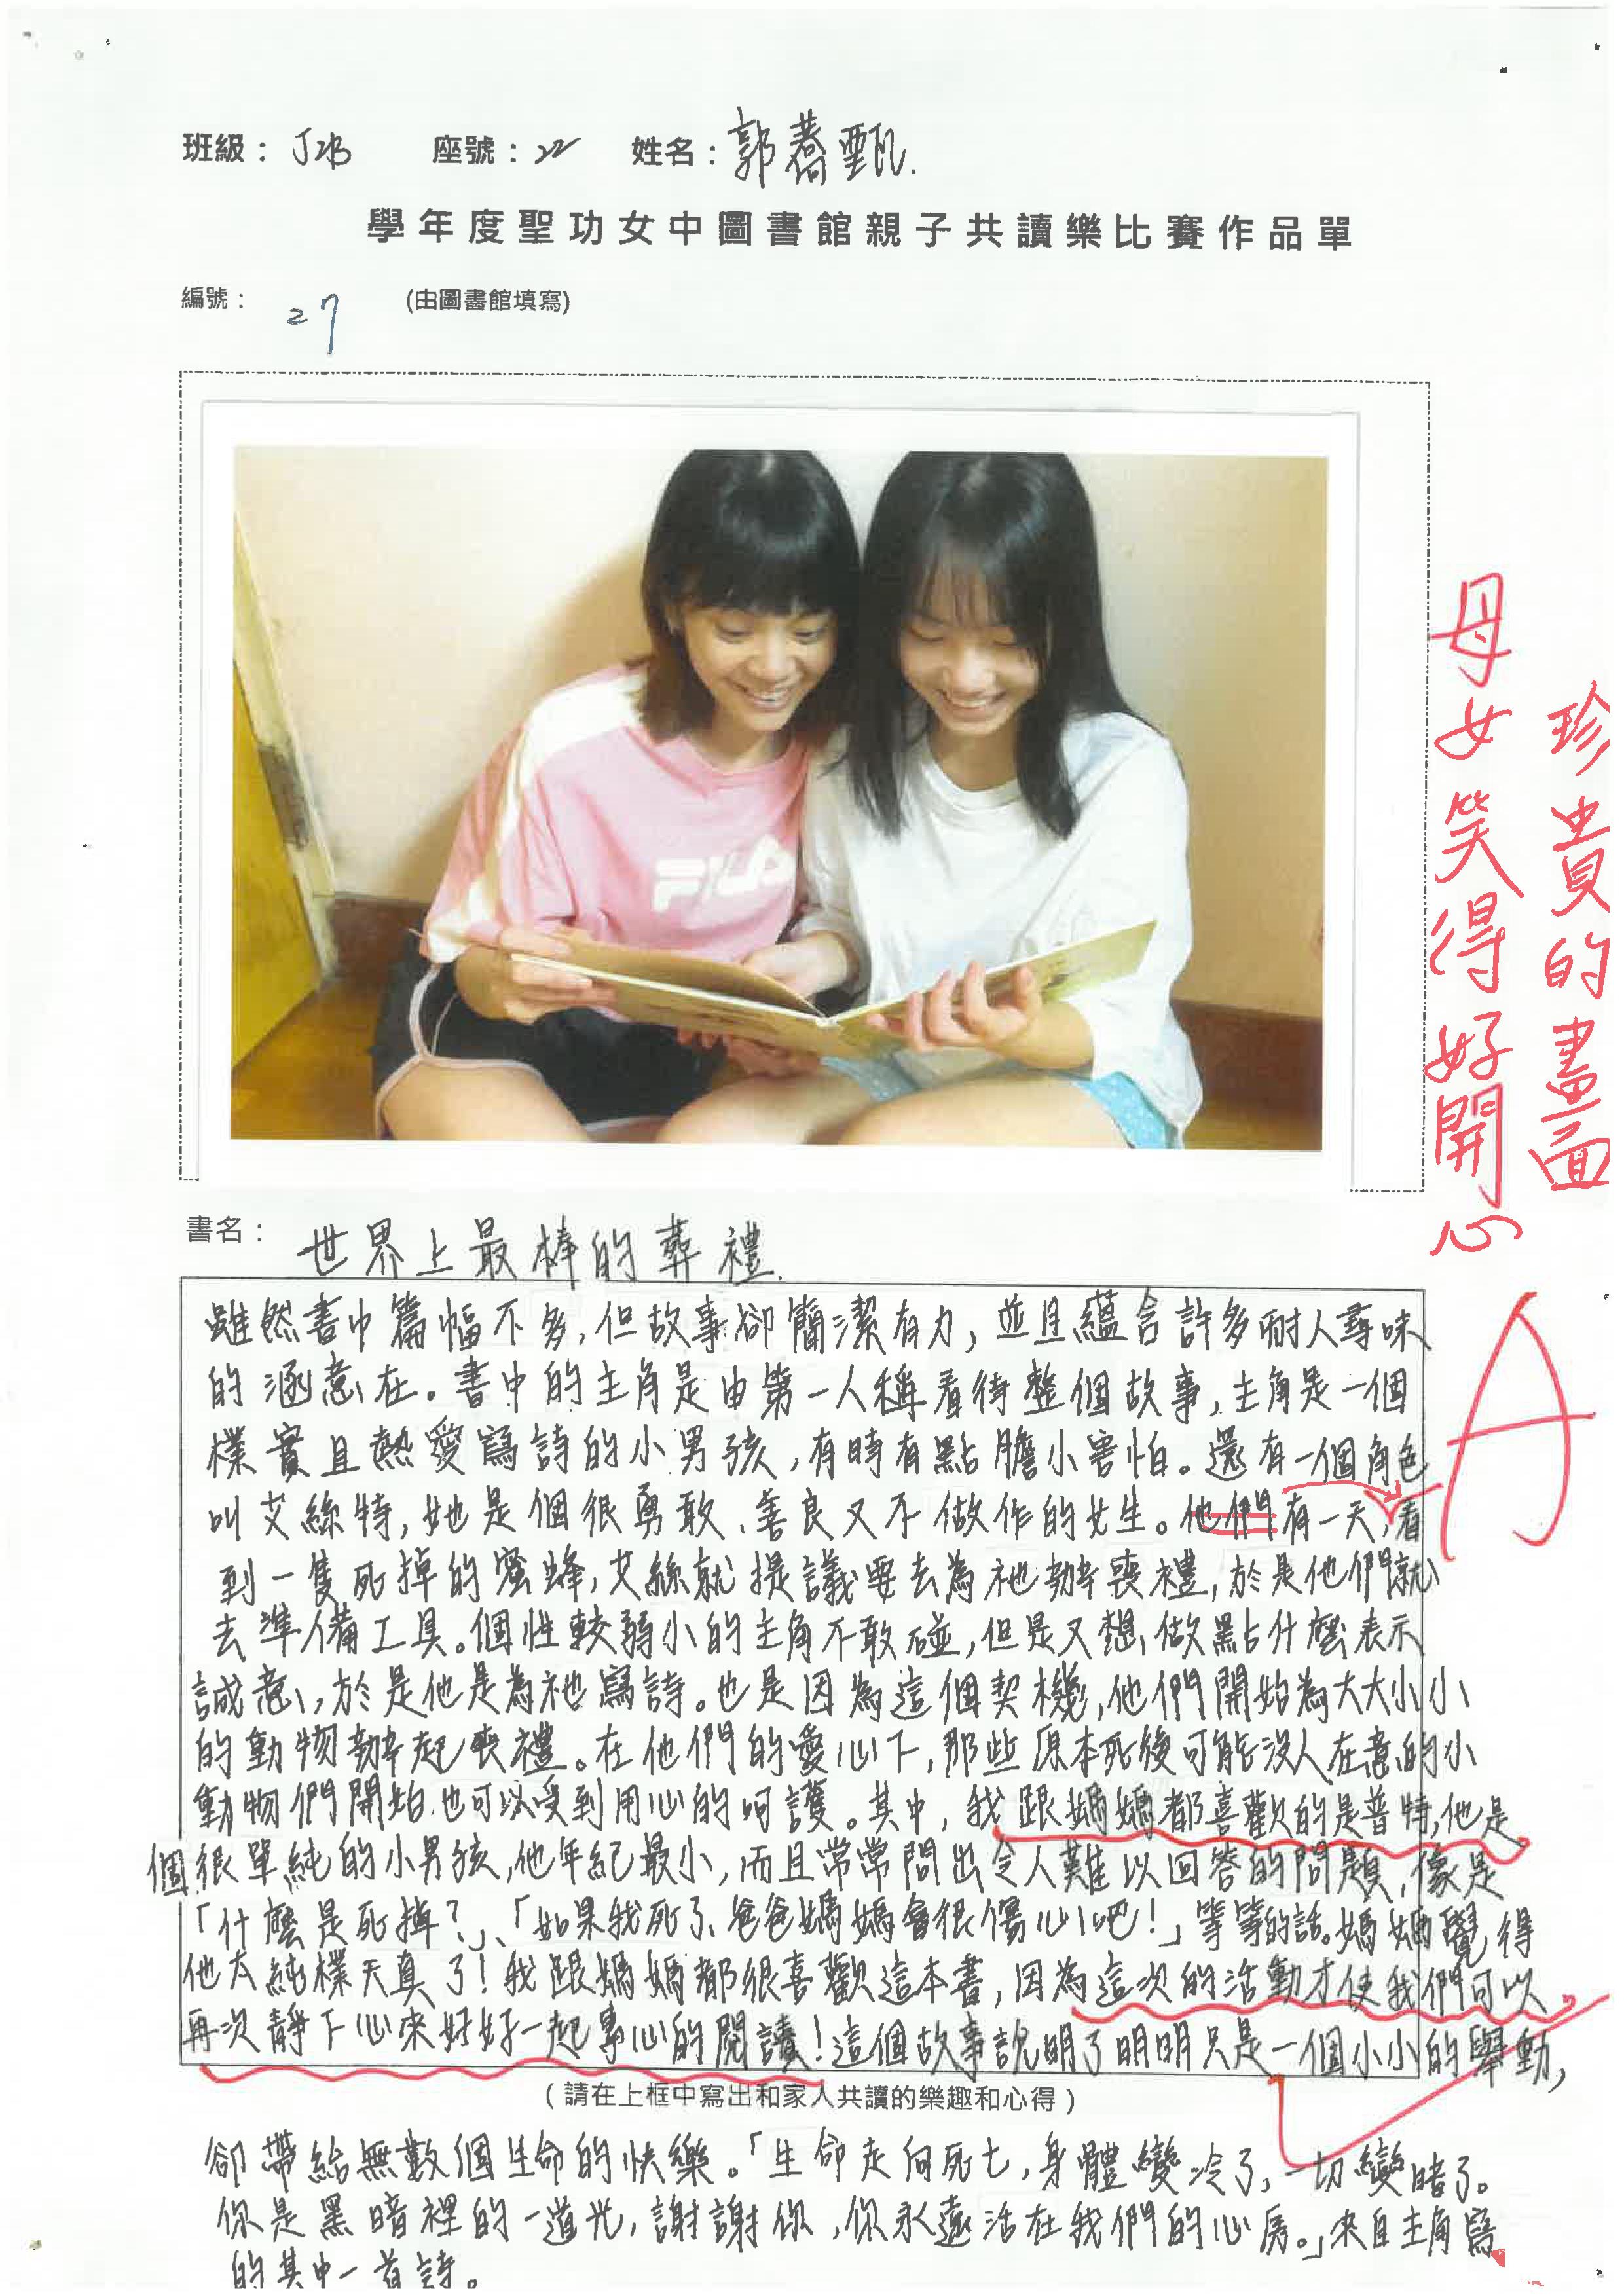 班級： J2B 座號：22 姓名：郭蕎甄.
學年度聖功女中圖書館親子共讀樂比賽作品單
編號： 27 (由圖書館填寫)
FILA
母女笑得好開心
珍貴的畫面
書名： 世界上最棒的葬禮.
A
雖然書中篇幅不多,但故事卻簡潔有力,並且蘊含許多耐人尋味
的涵意在。書中的主角是由第一人稱看待整個故事,主角是一個
樸實且熱愛寫詩的小男孩,有時有點膽小害怕。還有一個角色
叫艾絲特,她是個很勇敢、善良又不做作的女生。他們有一天,看
到一隻死掉的蜜蜂,艾絲就提議要去為祂辦喪禮,於是他們就
去準備工具。個性較弱小的主角不敢碰,但是又想做點什麼表示
誠意,於是他是為祂寫詩。也是因為這個契機,他們開始為大大小小
的動物辦起喪禮。在他們的愛心下,那些原本死後可能沒人在意的小
動物們開始也可以受到用心的呵護。其中,我跟媽媽都喜歡的是普特,他是
個很單純的小男孩,他年紀最小,而且常常問出令人難以回答的問題,像是
「什麼是死掉?」、「如果我死了、爸爸媽媽會很傷心吧!」等等的話。媽媽覺得
他太純樸天真了!我跟媽媽都很喜歡這本書,因為這次的活動才使我們可以
再次靜下心來好好一起專心的閱讀!這個故事說明了明明只是一個小小的舉動,
(請在上框中寫出和家人共讀的樂趣和心得)
卻帶給無數個生命的快樂。「生命走向死亡,身體變冷了,一切變暗了。
你是黑暗裡的一道光,謝謝你,你永遠活在我們的心房。」來自主角寫
的其中一首詩。